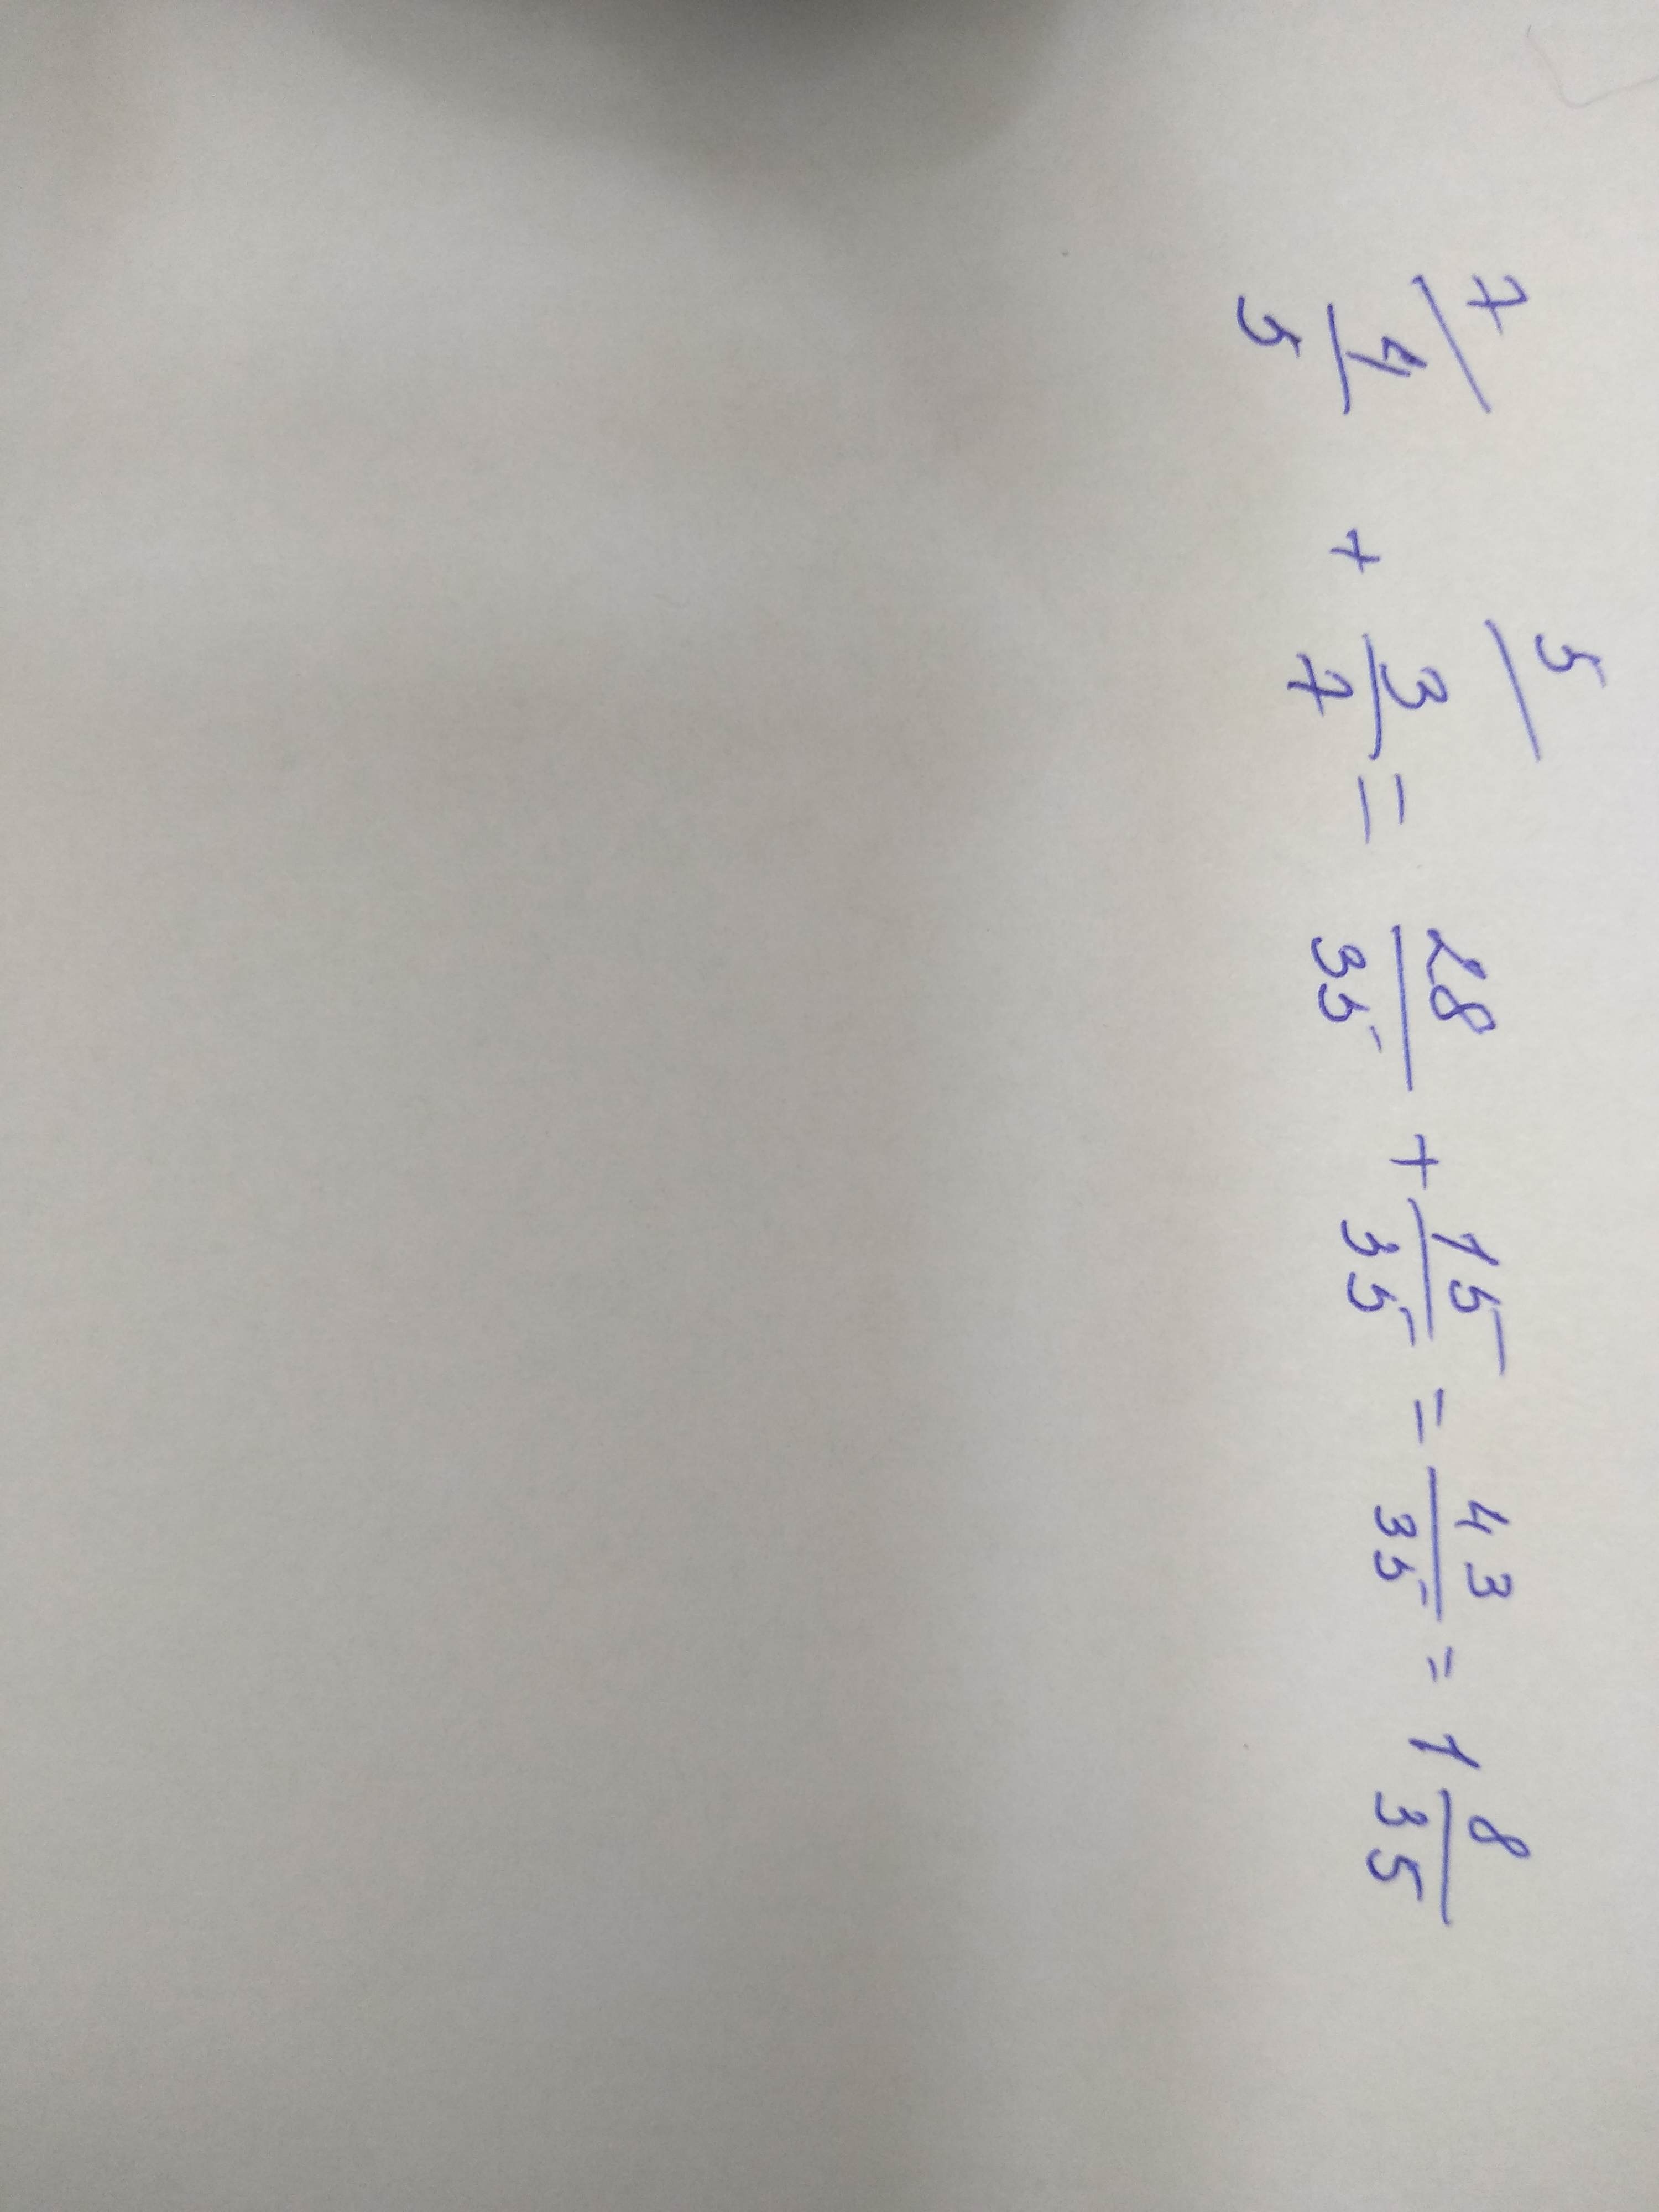 7/ 4/5 + 5/ 3/7 = 28/35 + 15/35 = 43/35 = 1 8/35